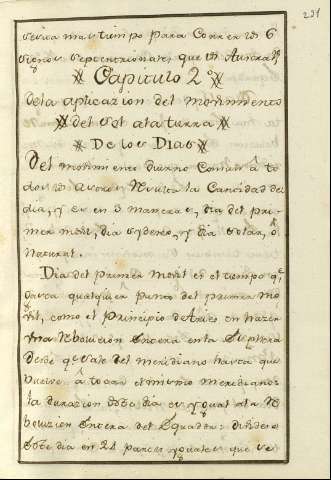 231
mas tiempo para correr los 6
signos septentrionales que los Australes
Capitulo 2º
De la aplicazion del movimiento
del sol a la tierra
De los Dias
Del movimiento diurno comun â to
dos los Astros Resulta la Cantidad del
dia, q es en 3 maneras, dia del pri
mer movil, dia sydereo, y dia solar, ô
Natural.
Dia del primer Movil es el tiempo qe
gasta qualquier punto del primer mo
vil, como el Principio de Aries en hazer
una Reboluzion Entera en la Esphera
desde que sale del meridiano hasta que
buelve â tocar el mismo meridiano
la durazion deste dia es ygual a la Re
boluzion Entera del Equador: dividese
Este dia en 24 partes yguales que se